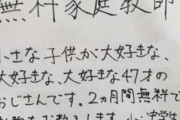 無料家庭教師
小さな子供が大好きな、
大好きな、大好きな47才の
おじさんです。2ヵ月間無料で